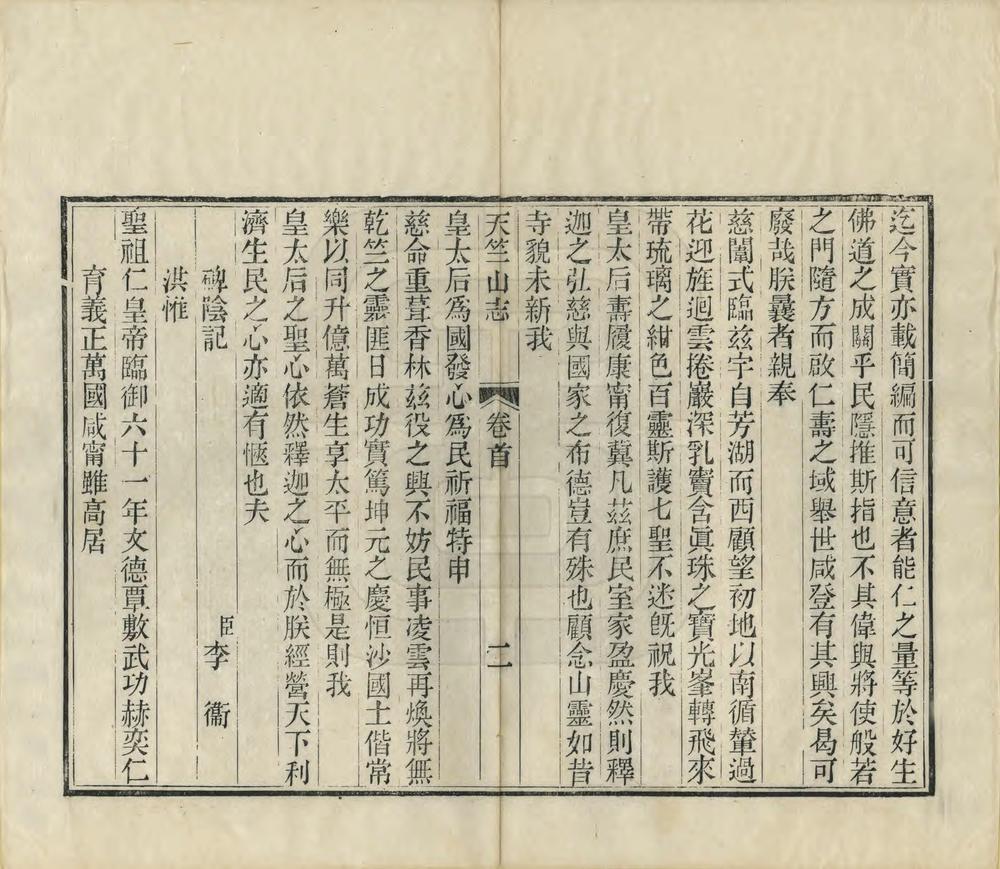 迄今實亦載簡編而可信意者能仁之量等於好生
佛道之成關乎民隱推斯指也不其偉與將使般若
之門隨方而啟仁壽之域舉世咸登有其興矣曷可
廢哉朕曩者親奉
慈闈式臨兹宇自芳湖而西顧望初地以南循輦過
花迎旌迴雲捲巖深乳竇含眞珠之寶光峯轉飛來
帶琉璃之紺色百靈斯護七聖不迷旣祝我
皇太后壽履康甯復冀凡兹庶民室家盈慶然則釋
迦之弘慈與國家之布德豈有殊也顧念山靈如昔
寺貌未新我
天竺山志 卷首 二
皇太后爲國發心爲民祈福特申
慈命重葺香林兹役之興不妨民事凌雲再煥將無
乾竺之靈匪日成功實篤坤元之慶恒沙國土偕常
樂以同升億萬蒼生享太平而無極是則我
皇太后之聖心依然釋迦之心而於朕經營天下利
濟生民之心亦適有愜也夫
碑陰記 臣李衞
洪惟
聖祖仁皇帝臨御六十一年文德覃敷武功赫奕仁
育義正萬國咸甯雖高居